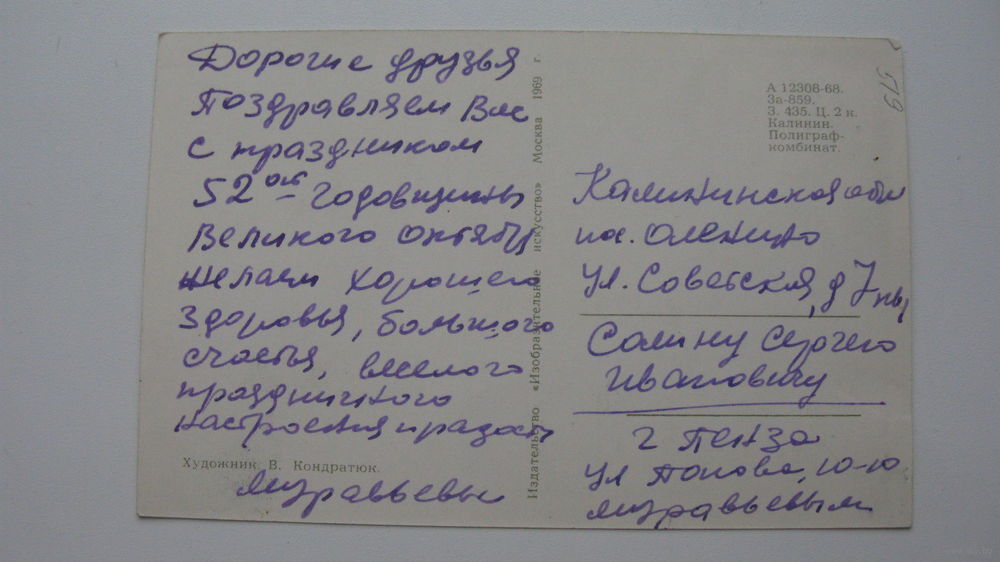 Дорогие друзья
Поздравляем Вас
с праздником
52ой годовщины
Великого Октября
желаем хорошего
здоровья, большого
счастья, веселого
праздничного
настроения и радости
Художник В. Кондратюк.
Муравьевы
Издательство «Изобразительное искусство» Москва 1969 г.
579
А 12308-68.
За-859.
З. 435. Ц. 2 к.
Калинин.
Полиграф-
комбинат.
Калининская обл
пос. Оленино
ул. Советская, д 7
Солину Сергею
Ивановичу
г Пенза
ул Попова, 10-10
Муравьевым